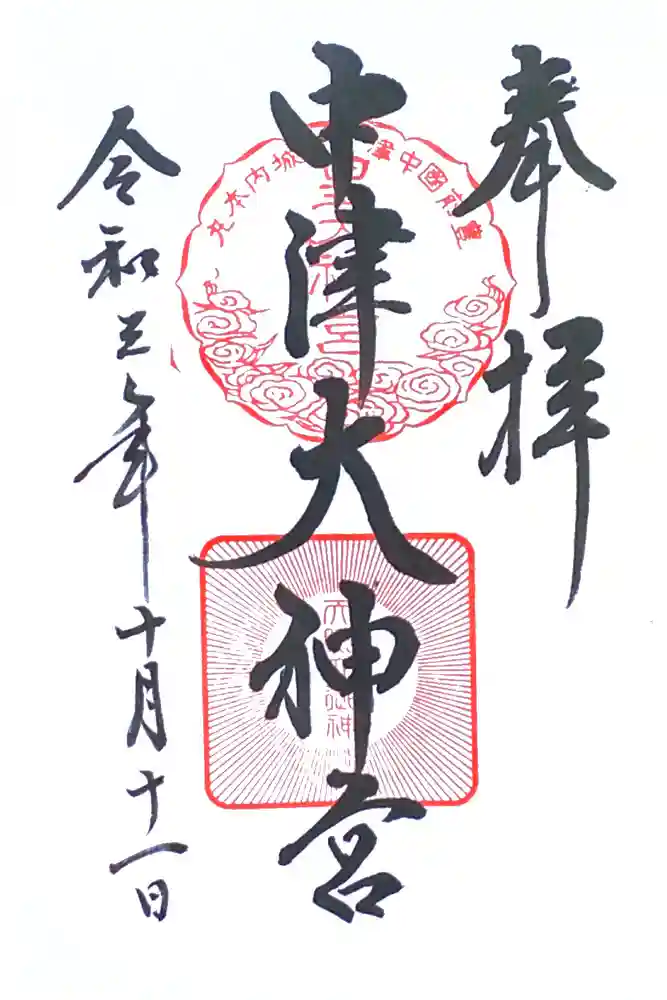 奉拝
中津大神宮
令和三年十月十一日
豊前國中津城内本丸